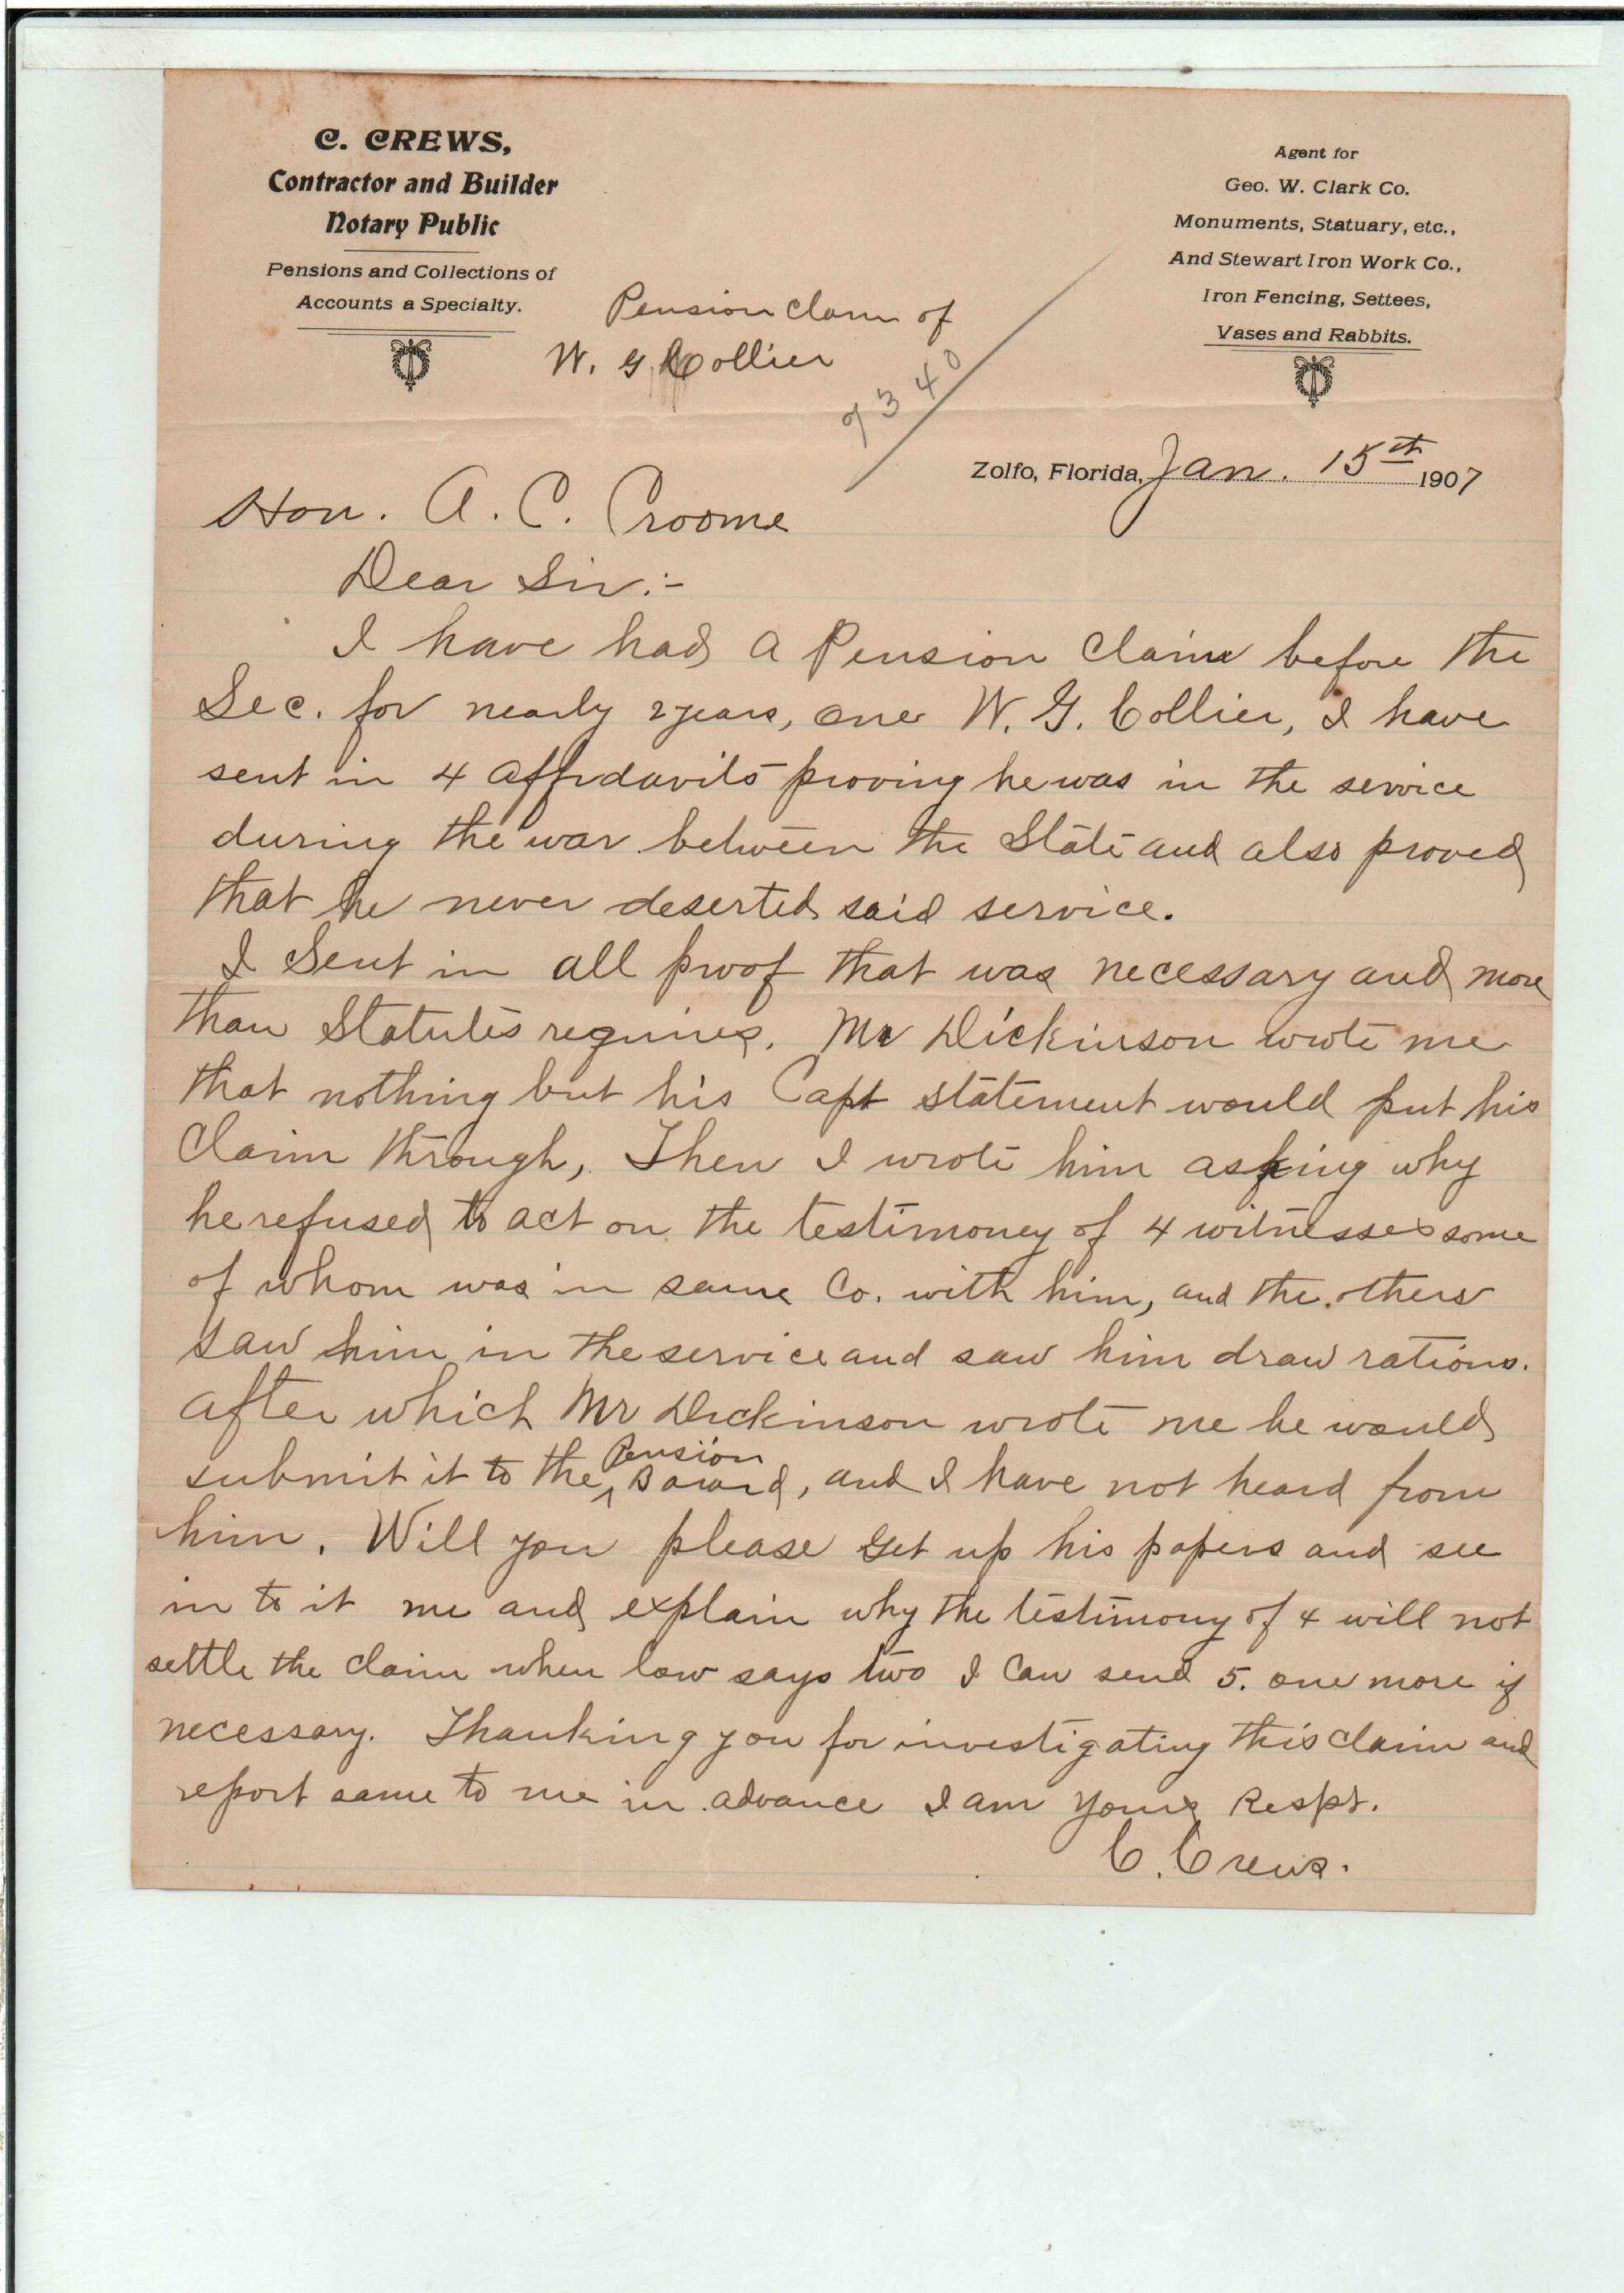 C. CREWS,
Contractor and Builder
Notary Public
Pensions and Collections of
Accounts a Specialty.
Agent for
Geo. W. Clark Co.
Monuments, Statuary, etc.,
And Stewart Iron Work Co.,
Iron Fencing, Settees,
Vases and Rabbits.
Pension Claim of
W. G. Collier
9340
Zolfo, Florida, Jan. 15th 1907
Hon. A. C. Croome
Dear Sir:-
I have had a Pension Claim before the
Sec. for nearly 2 years, one W. G. Collier, I have
sent in 4 affidavits proving he was in the service
during the war between the State and also proved
that he never deserted said service.
I Sent in all proof that was necessary and more
than Statutes requires. Mr Dickinson wrote me
that nothing but his Capt statement would put his
Claim through, Then I wrote him asking why
he refused to act on the testimoney of 4 witnesses some
of whom was in same Co. with him, and the others
saw him in the service and saw him draw rations.
After which Mr Dickinson wrote me he would
submit it to the ^ Pension Board, and I have not heard from
him. Will you please get up his papers and see
in to it me and explain why the testimony of 4 will not
settle the claim when law says two I can send 5. one more if
necessary. Thanking you for investigating this claim and
report same to me in advance I am yours Respt.
C. Crews.